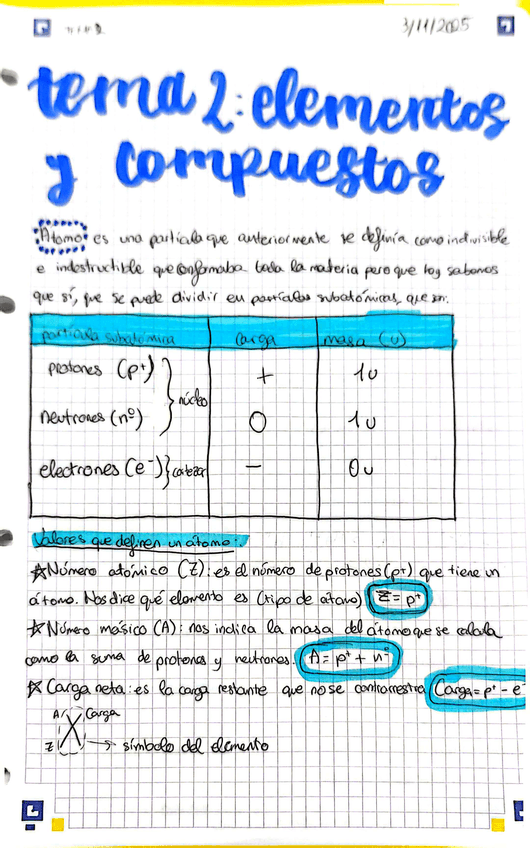 3/11/2025
tema 2: elementos
y compuestos
Átomo: es una partícula que anteriormente se definía como indivisible
e indestructible que conformaba toda la materia pero que hoy sabemos
que sí, que se puede dividir en partículas subatómicas, que son:
partícula subatómica carga masa (u)
protones (p+) + 1u
núcleo
neutrones (nº) 0 1u
electrones (e-) corteza - 0u
Valores que definen un átomo:
Número atómico (Z): es el número de protones (p+) que tiene un
átomo. Nos dice qué elemento es (tipo de átomo) Z = p+
Número másico (A): nos indica la masa del átomo que se calcula
como la suma de protones y neutrones. A = p+ + nº
Carga neta: es la carga restante que no se contrarresta Carga = p+ - e-
A Carga
X
Z → símbolo del elemento